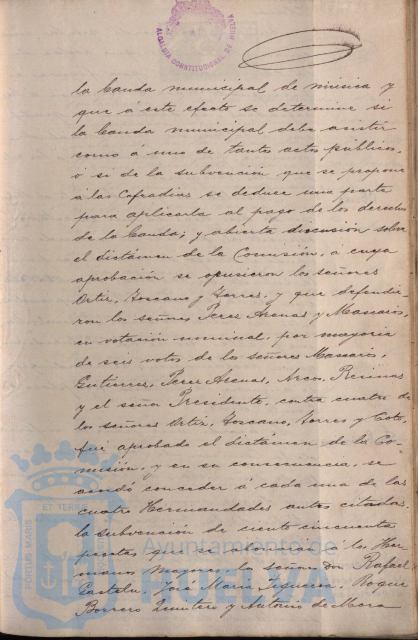 ALCALDÍA CONSTITUCIONAL DE HUELVA
la banda municipal de música y
que á este efecto se determine si
la banda municipal debe asistir
como á uno de tantos actos públicos,
ó si de la subvención que se propone
á las Cofradías se deduce una parte
para aplicarla al pago de los derechos
de la banda; y abierta discusión sobre
el dictámen de la Comisión, á cuya
aprobación se opusieron los señores
Ortiz, Toscano y Torres, y que defendie-
ron los señores Perez Arenas y Mascarós,
en votación nominal, por mayoría
de seis votos de los señores Mascarós,
Gutierrez, Perez Arenas, Arcos,
y el señor Presidente, contra cuatro de
los señores Ortiz, Toscano, Torres y Coto,
fué aprobado el dictámen de la Co-
misión, y en su consecuencia, se
acordó conceder á cada una de las
cuatro Hermandades antes citadas,
la subvención de ciento cincuenta
pesetas que se abonarán á los Her-
manos Mayores los señores Don Rafael
José María Figueroa, Roque
Borrero Quintero y Antonio de Mora
PORTUS MARIS ET TERRAE
Ayuntamiento de
HUELVA